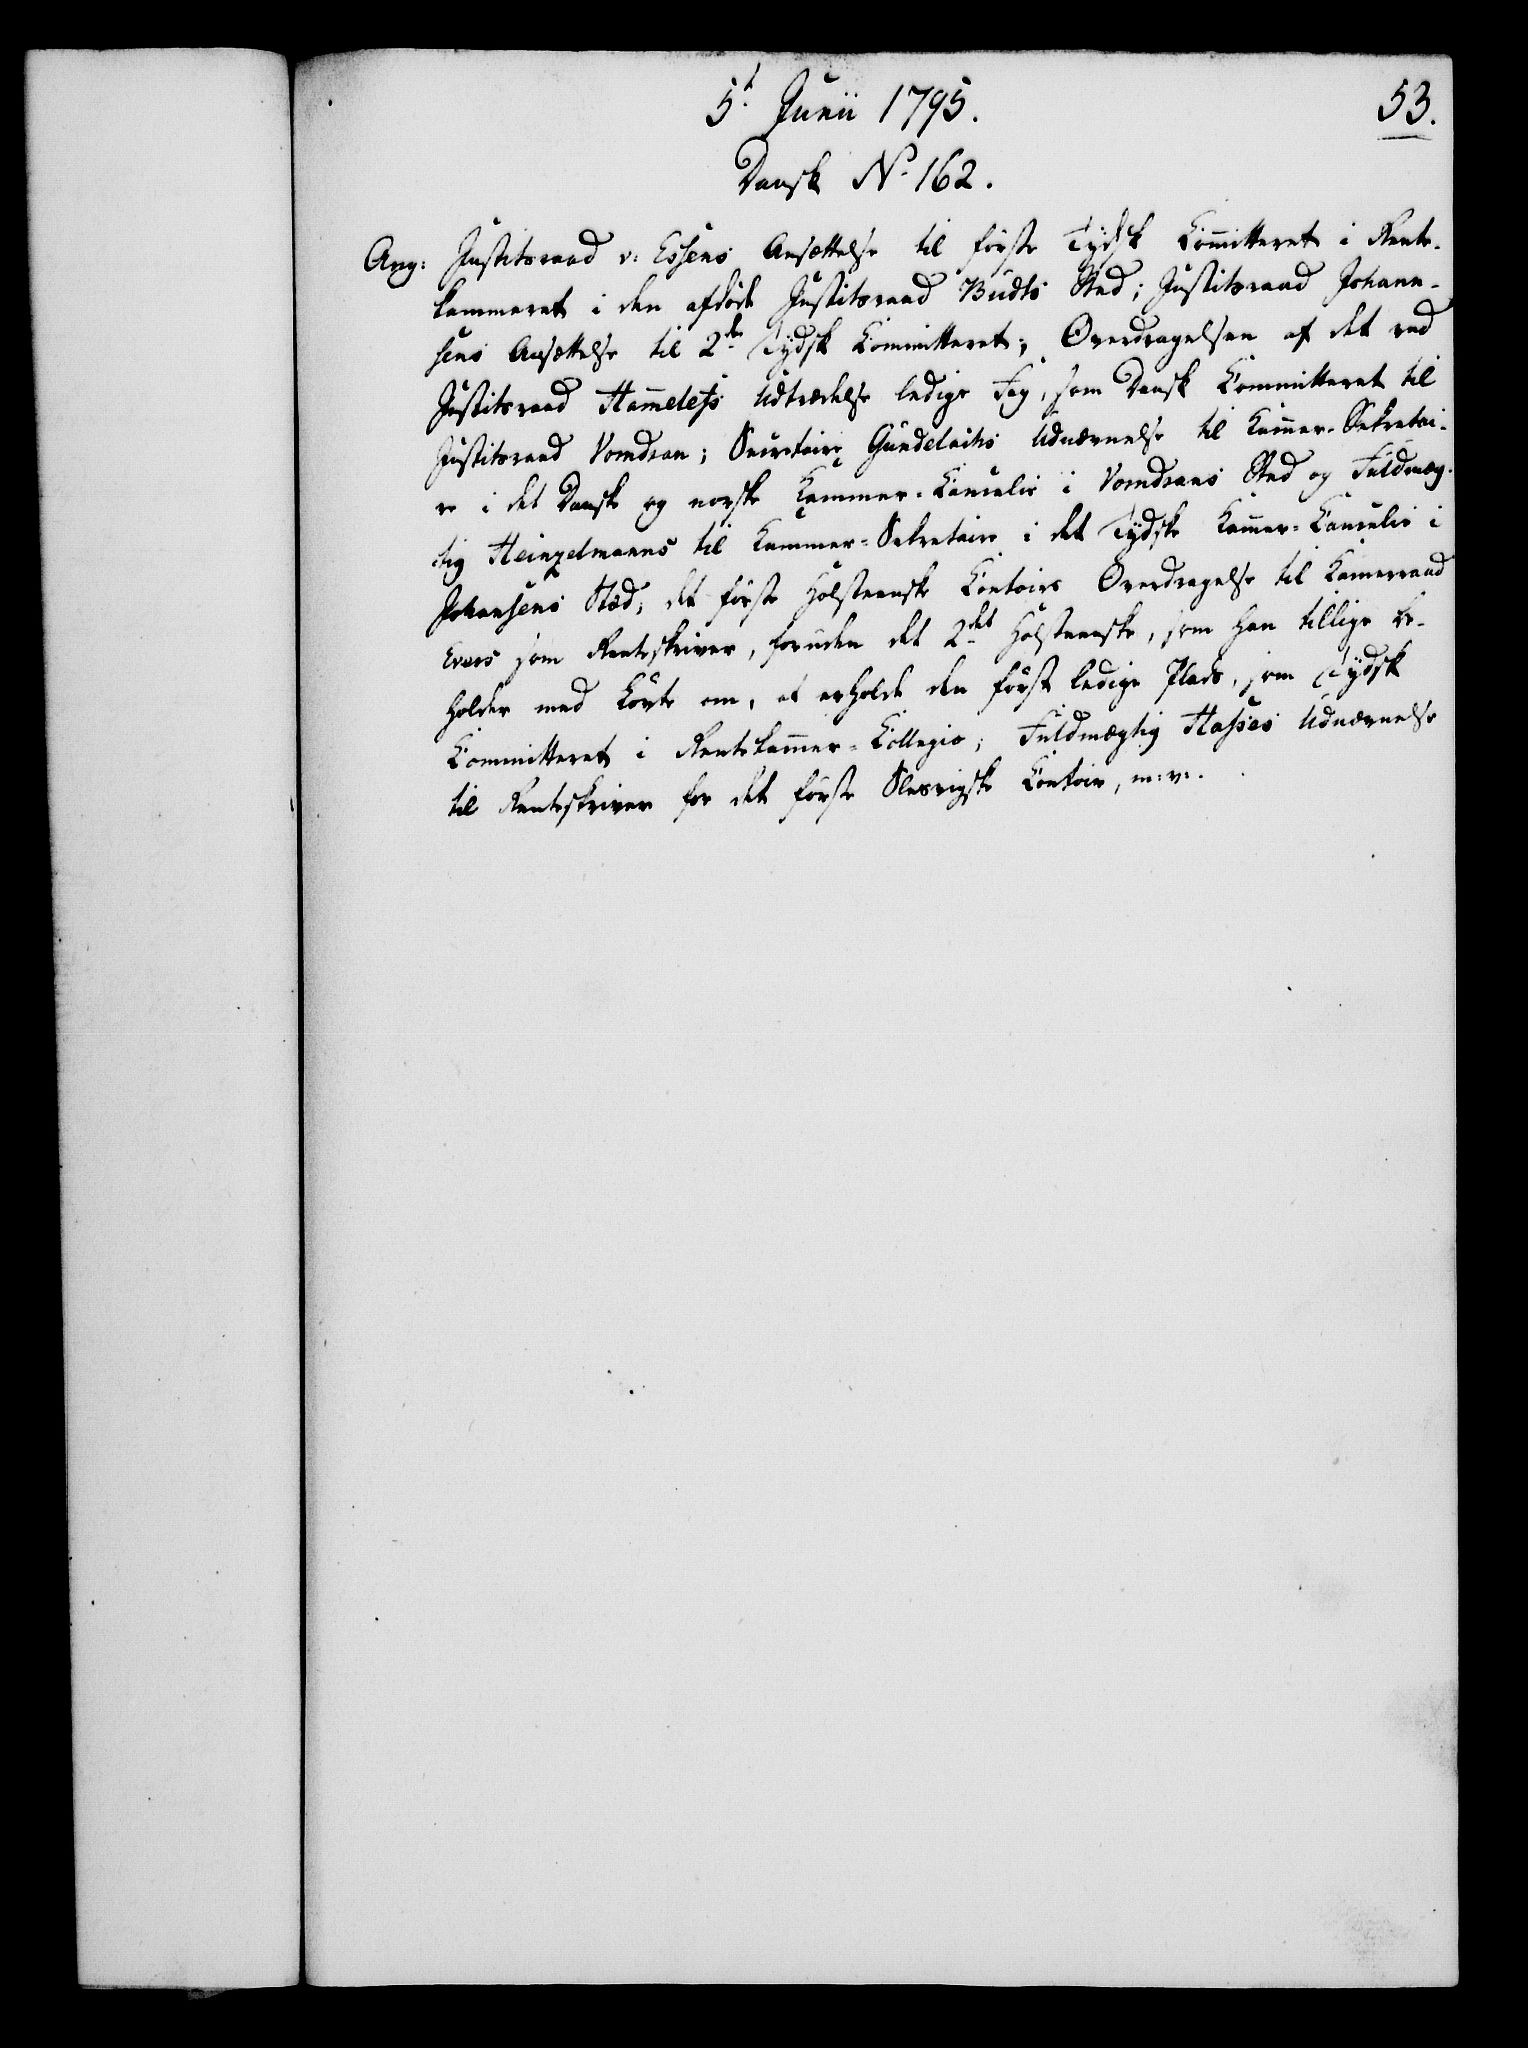 5t Junii 1795.
53.
Dansk No 162.
Ang: Justitsraad v: Essens Ansættelse til første Tydsk Committeret i Rente-
kammeret i den afdøde Justitsraad Budts Sted; Justitsraad Johann-
sens Ansættelse til 2den Tydsk Committeret; Overdragelsen af det ved
Justitsraad Hammelefs Udtrædelse ledige Fag, som Dansk Committeret til
Justitsraad Vomdran; Secretaire Gundelachs Udnævnelse til Kammer-Sekretai-
re i det Danske og norske Kammer-Cancelie i Vomdrans Sted og Fuldmæg-
tig Heinzelmanns til Kammer-Sekretaire i det Tydske Kammer-Cancelie i
Johansens Sted; det første Holsteenske Contoirs Overdragelse til Kammerraad
Evers som Renteskriver, foruden det 2det Holsteenske, som han tillige be-
holder med Løvte om, at erholde den først ledige Plads, som Tydsk
Committeret i Rentekammer-Collegio; Fuldmægtig Hasses Udnævnelse
til Renteskriver for det første Slesvigske Contoir, m: v:.